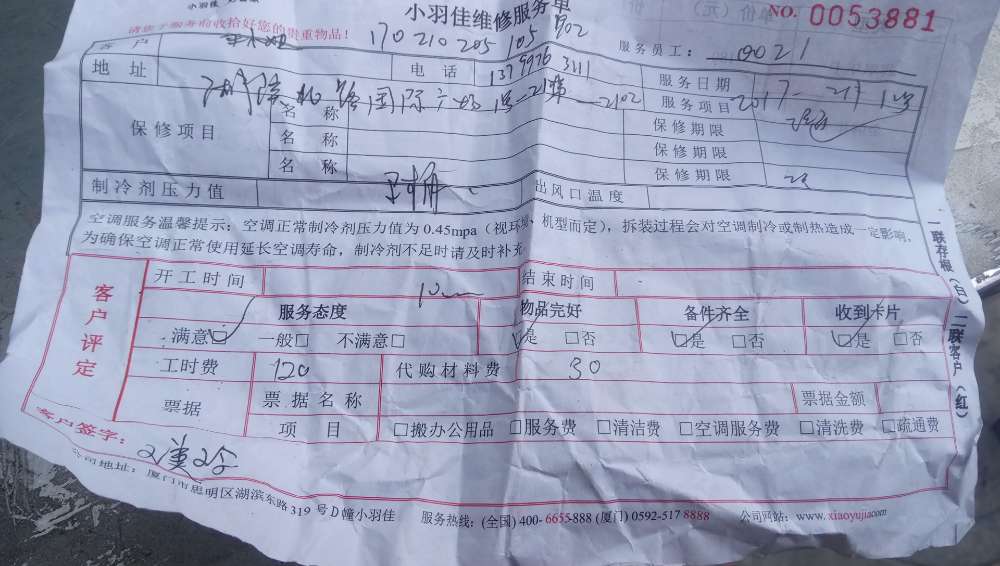 小羽佳维修服务单
NO. 0053881
请您于服务前收拾好您的贵重物品！
170210205105902
客户
服务员工： 0021
地址 电话
服务日期 2017
名称 服务项目
保修项目 保修期限
名称 保修期限
名称 保修期限
制冷剂压力值 出风口温度
空调服务温馨提示：空调正常制冷剂压力值为 0.45mpa（视环境、机型而定），拆装过程会对空调制冷或制热造成一定影响，
为确保空调正常使用延长空调寿命，制冷剂不足时请及时补充
客户评定
开工时间 结束时间
服务态度 物品完好 备件齐全 收到卡片
满意□ 一般□ 不满意□ □是 □否 □是 □否 □是 □否
工时费 120 代购材料费 30
票据 票据名称 票据金额
项目 □搬办公用品 □服务费 □清洁费 □空调服务费 □清洗费 □疏通费
客户签字：
公司地址：厦门市思明区湖滨东路319号D幢小羽佳 服务热线：(全国) 400-6655-888 (厦门) 0592-517 8888 公司网站：www.xiaoyujia.com
一联存根（白） 二联客户（红）